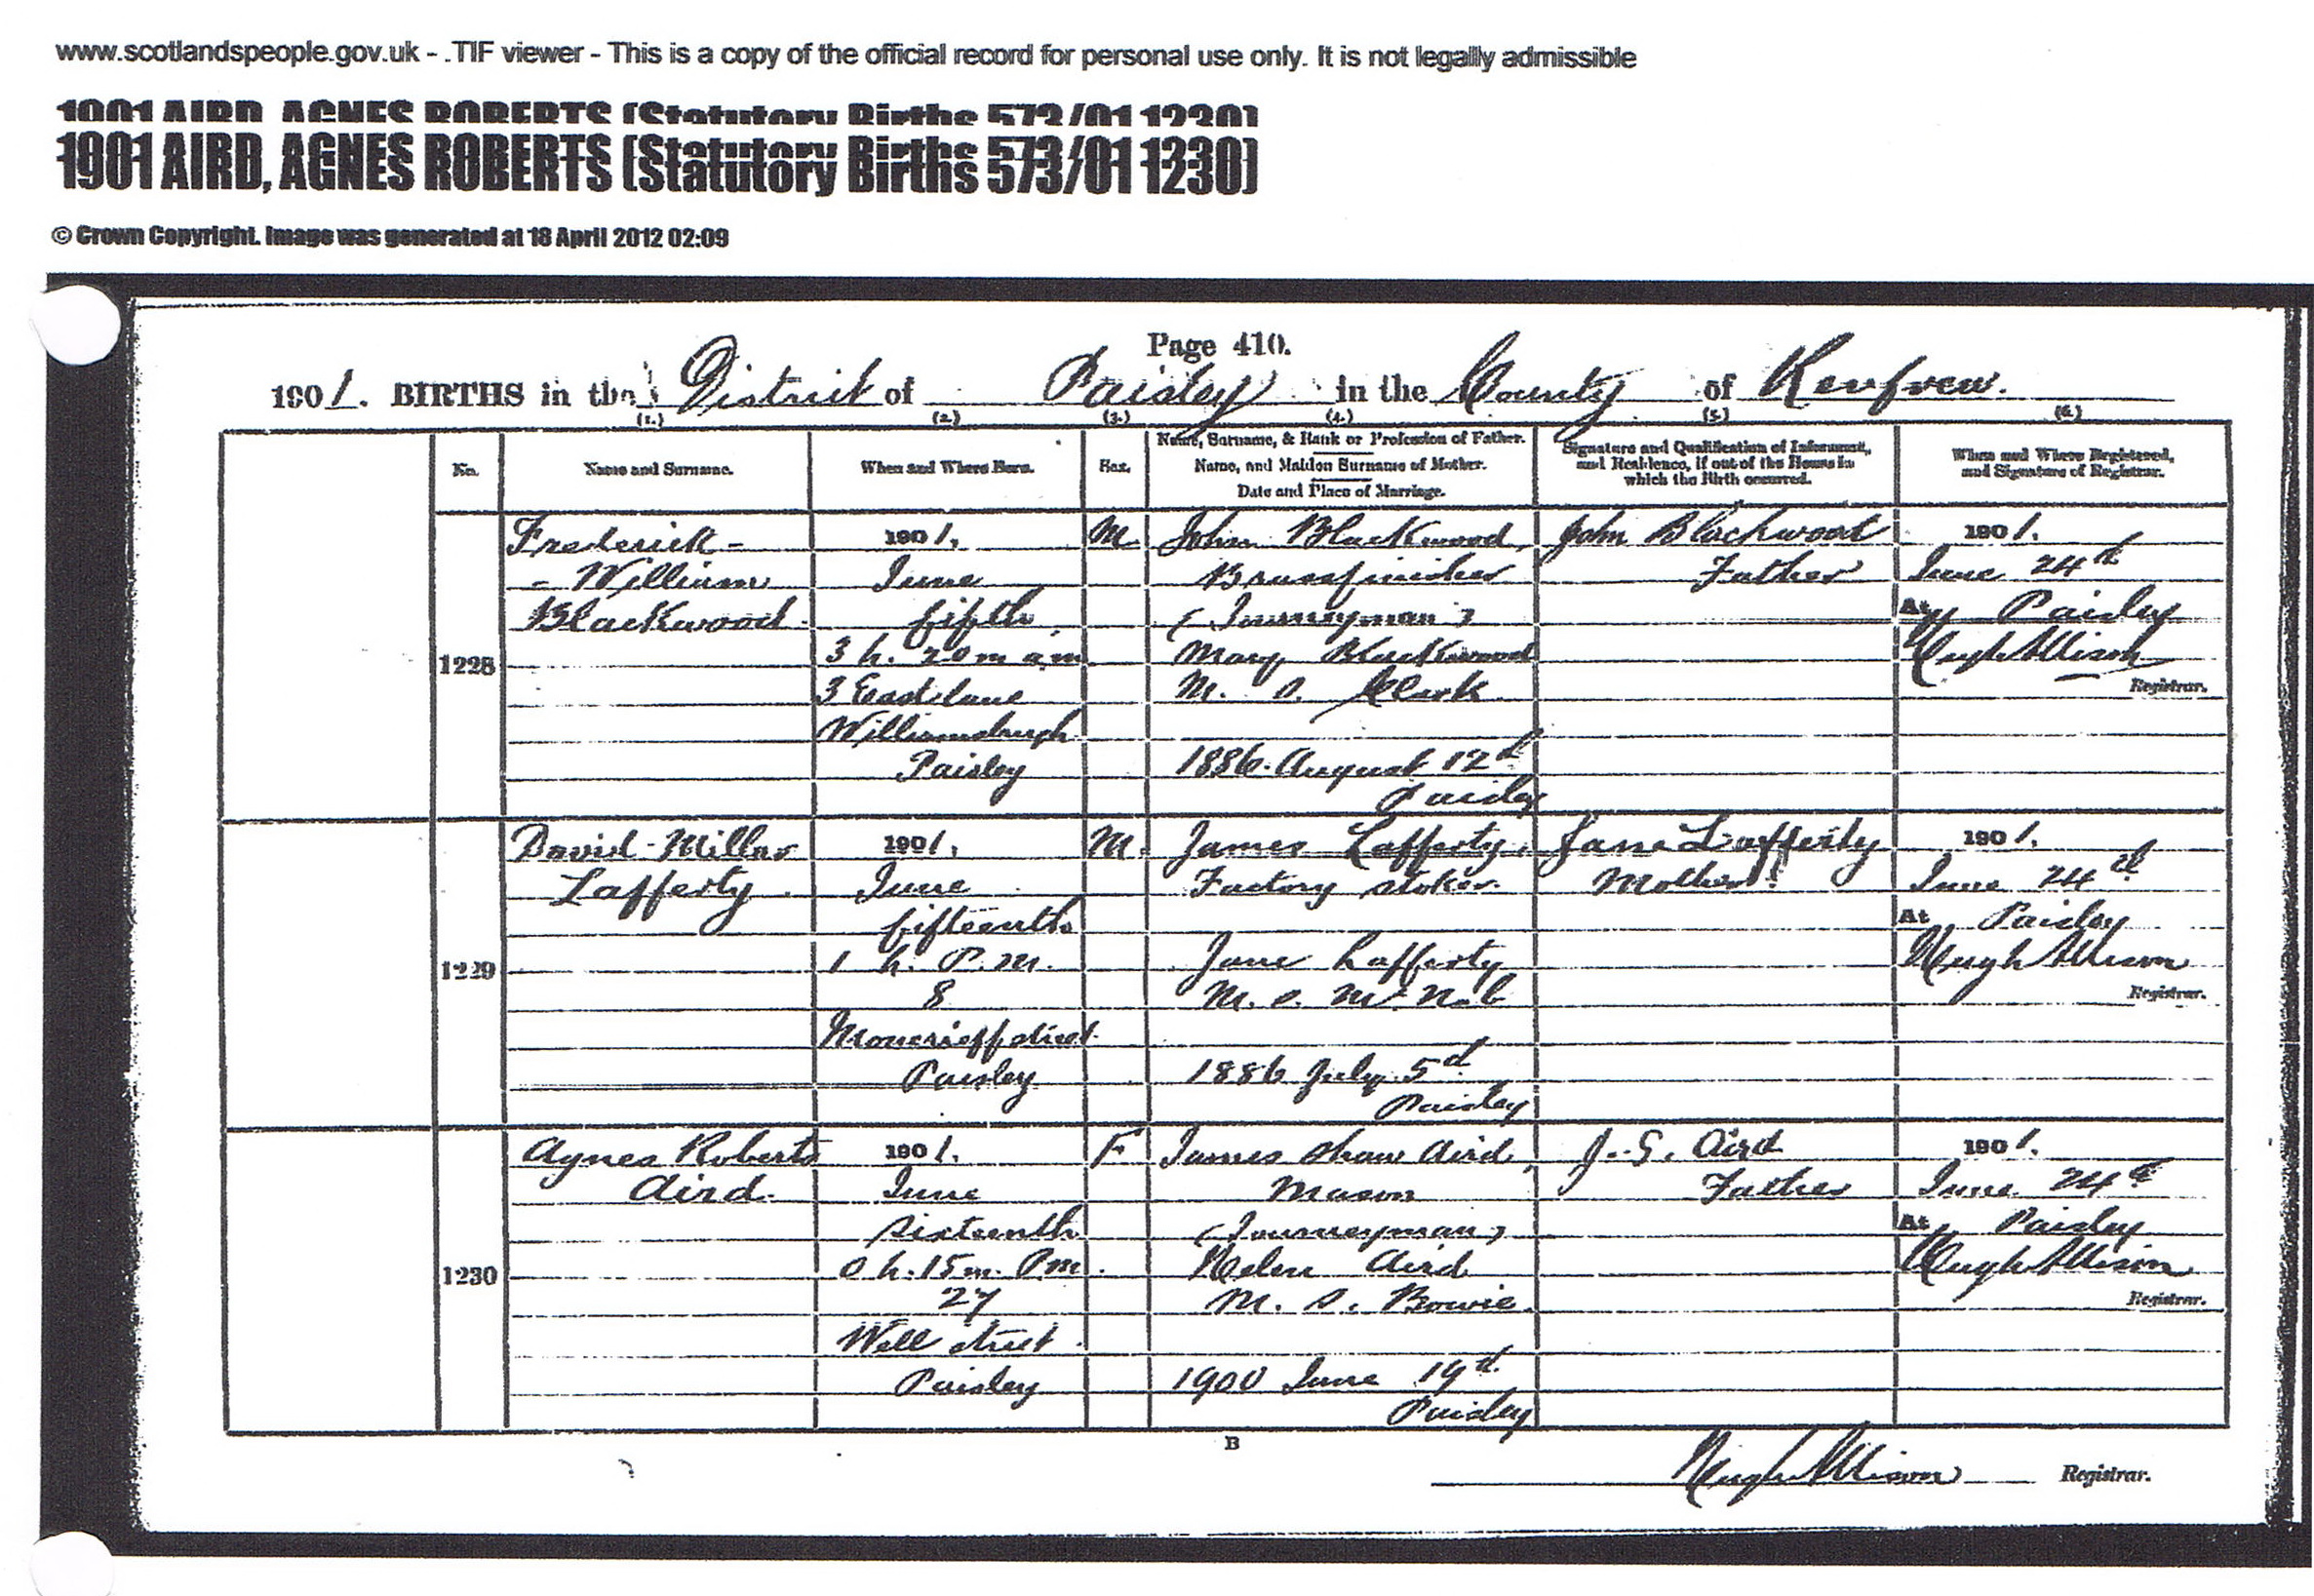 www.scotlandspeople.gov.uk - .TIF viewer - This is a copy of the official record for personal use only. It is not legally admissible
1901 AIRD, AGNES ROBERTS (Statutory Births 573/01 1230)
1901 AIRD, AGNES ROBERTS (Statutory Births 573/01 1230)
© Crown Copyright. Image was generated at 18 April 2012 02:09
Page 410.
1901. BIRTHS in the District of Paisley in the County of Renfrew.
(1.) (2.) (3.) (4.) (5.) (6.)
No.
Name and Surname.
When and Where Born.
Sex.
Name, Surname, & Rank or Profession of Father.
Name, and Maiden Surname of Mother.
Date and Place of Marriage.
Signature and Qualification of Informant,
and Residence, if out of the House in
which the Birth occurred.
When and Where Registered,
and Signature of Registrar.
1228
Frederick -
- William
Blackwood
1901.
June
fifth
3 h. 20 m a m
3 East lane
Williamsburgh
Paisley
M
John Blackwood,
Brassfinisher
(Journeyman)
Mary Blackwood
M. S. Clark
1886. August 12th
Paisley
John Blackwood
Father
1901.
June 24th
At Paisley
Hugh Allison
Registrar.
1229
David Millar
Lafferty
1901.
June
fifteenth
1 h. P.M.
8
Moncrieff street
Paisley
M.
James Lafferty,
Factory stoker
Jane Lafferty
M. S. McNab
1886 July 5th
Paisley
Jane Lafferty
Mother.
1901.
June 24th
At Paisley
Hugh Allison
Registrar.
1230
Agnes Roberts
Aird.
1901.
June
sixteenth
0 h. 15 m. P m.
27
Well street
Paisley
F
James Shaw Aird,
Mason
(Journeyman)
Helen Aird
M. S. Bowie.
1900 June 19th
Paisley
J. S. Aird
Father
1901.
June 24th
At Paisley
Hugh Allison
Registrar.
B
Hugh Allison Registrar.